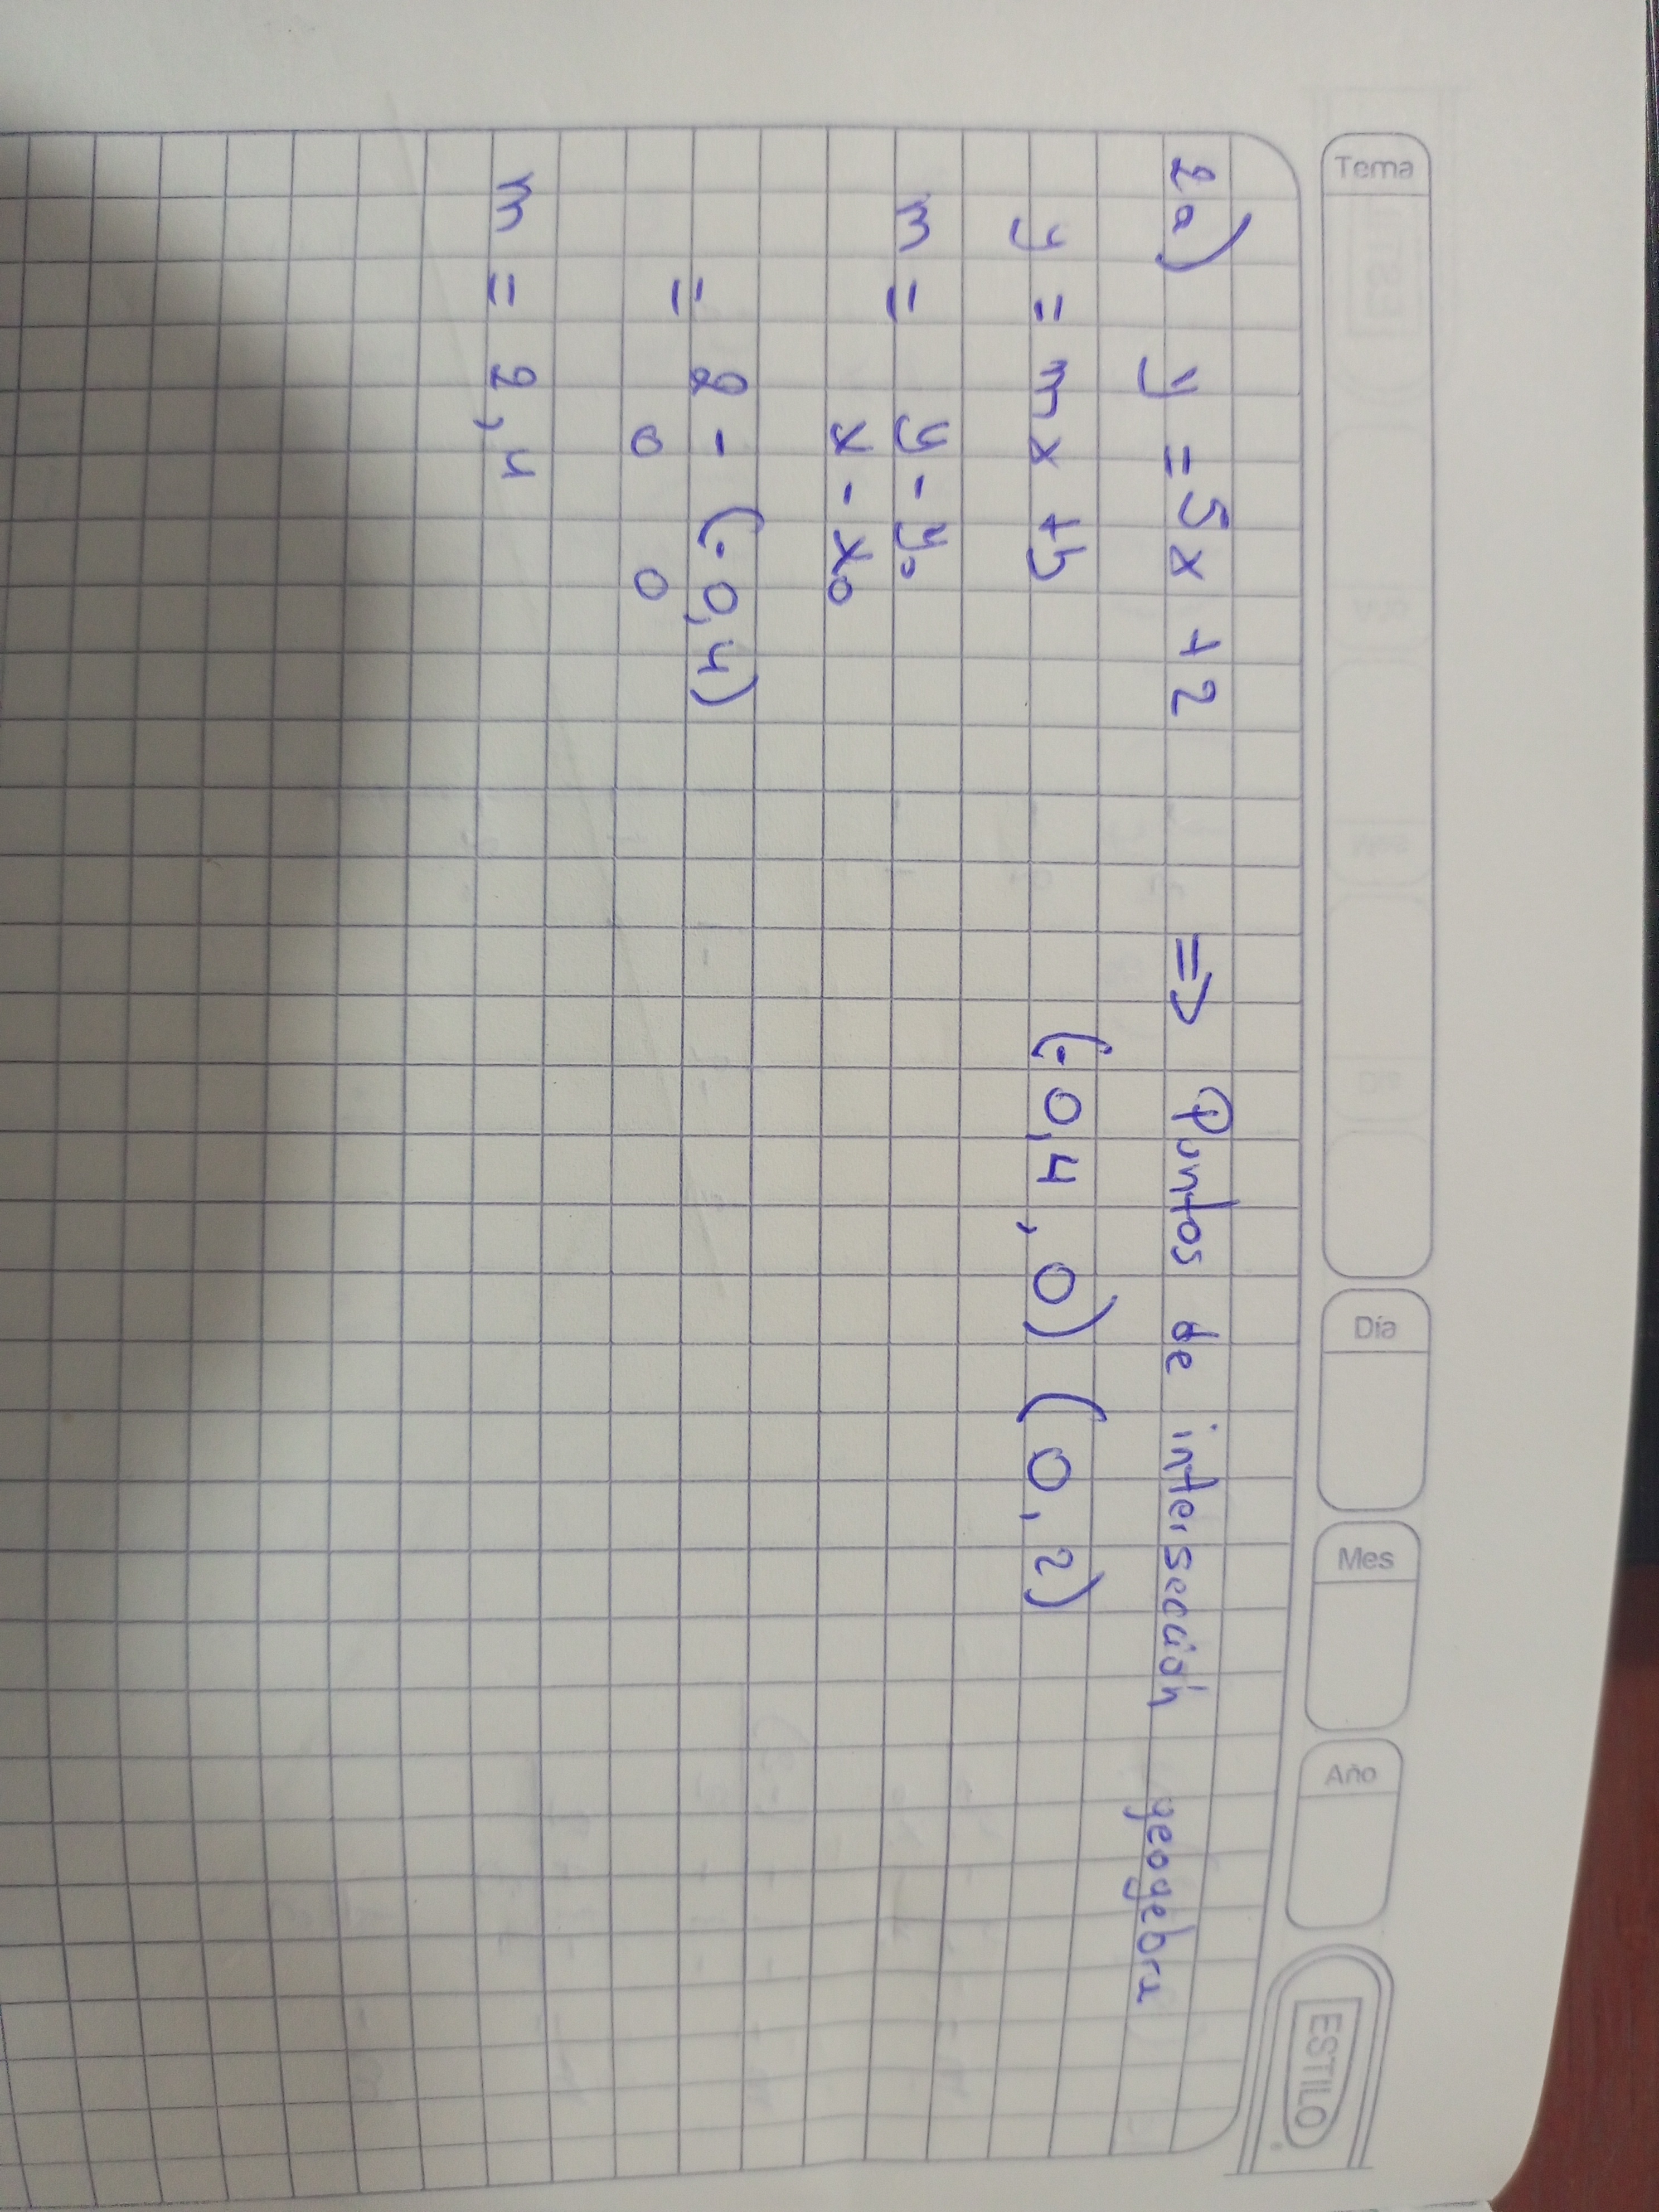 Tema Día Mes Año ESTILO
2a) y = 5x + 2 => Puntos de intersección geogebra
y = mx + b (-0,4 , 0) (0, 2)
m = y - y₀
x - x₀
= 2 - (-0,4)
0 0
m = 2,4